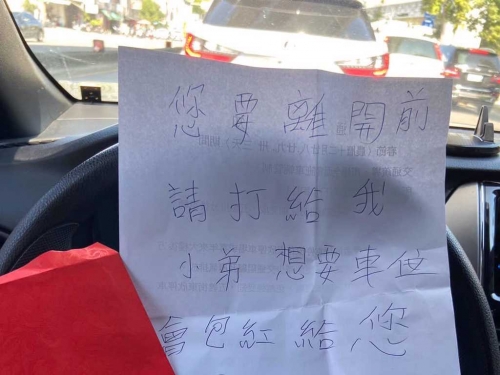 您要離開前
請打給我
小弟想要車位
會包紅給您